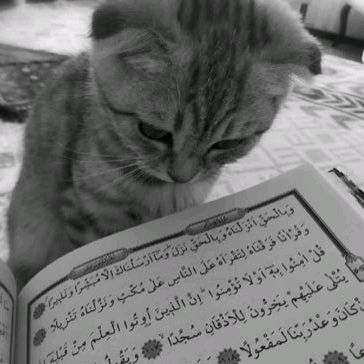 وَبِالْحَقِّ أَنزَلْنَاهُ وَبِالْحَقِّ نَزَلَ وَمَا أَرْسَلْنَاكَ إِلَّا مُبَشِّرًا وَنَذِيرًا
وَقُرْآنًا فَرَقْنَاهُ لِتَقْرَأَهُ عَلَى النَّاسِ عَلَى مُكْثٍ وَنَزَّلْنَاهُ تَنْزِيلًا
قُلْ آمِنُوا بِهِ أَوْ لَا تُؤْمِنُوا إِنَّ الَّذِينَ أُوتُوا الْعِلْمَ مِنْ قَبْلِهِ
يُتْلَى عَلَيْهِمْ يَخِرُّونَ لِلْأَذْقَانِ سُجَّدًا وَيَقُولُ
كَانَ وَعْدُ رَبِّنَا لَمَفْعُولًا